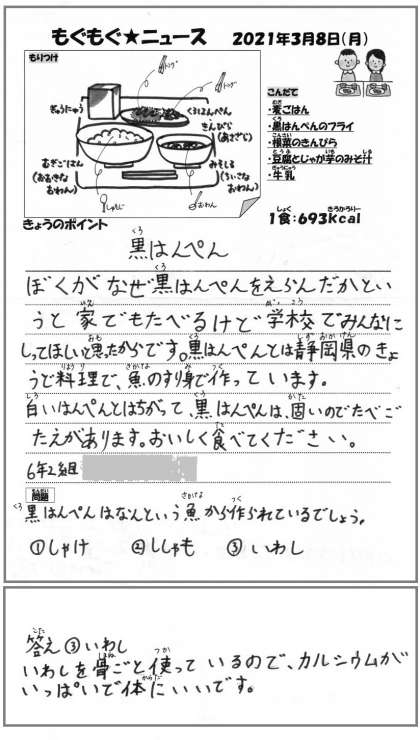 もぐもぐ★ニュース 2021年3月8日(月)
もりつけ
トング
トング
ぎゅうにゅう
くろはんぺん
きんぴら
(あさざら)
むぎごはん
(おおきな
おわん)
みそしる
(ちいさな
おわん)
しゃもじ
おわん
こんだて
・麦ごはん
・黒はんぺんのフライ
・根菜のきんぴら
・豆腐とじゃが芋のみそ汁
・牛乳
1食:693Kcal
きょうのポイント
黒はんぺん
ぼくがなぜ黒はんぺんをえらんだかとい
うと家でもたべるけど学校でみんなに
してほしいと思ったからです。黒はんぺんとは静岡県のきょ
うど料理で、魚のすり身で作っています。
白いはんぺんとはちがって、黒はんぺんは、固いのでたべご
たえがあります。おいしく食べてください。
6年2組
問題
黒はんぺんはなんという魚から作られているでしょう。
①しゃけ ②ししゃも ③いわし
答え③いわし
いわしを骨ごと使っているので、カルシウムが
いっぱいで体にいいです。